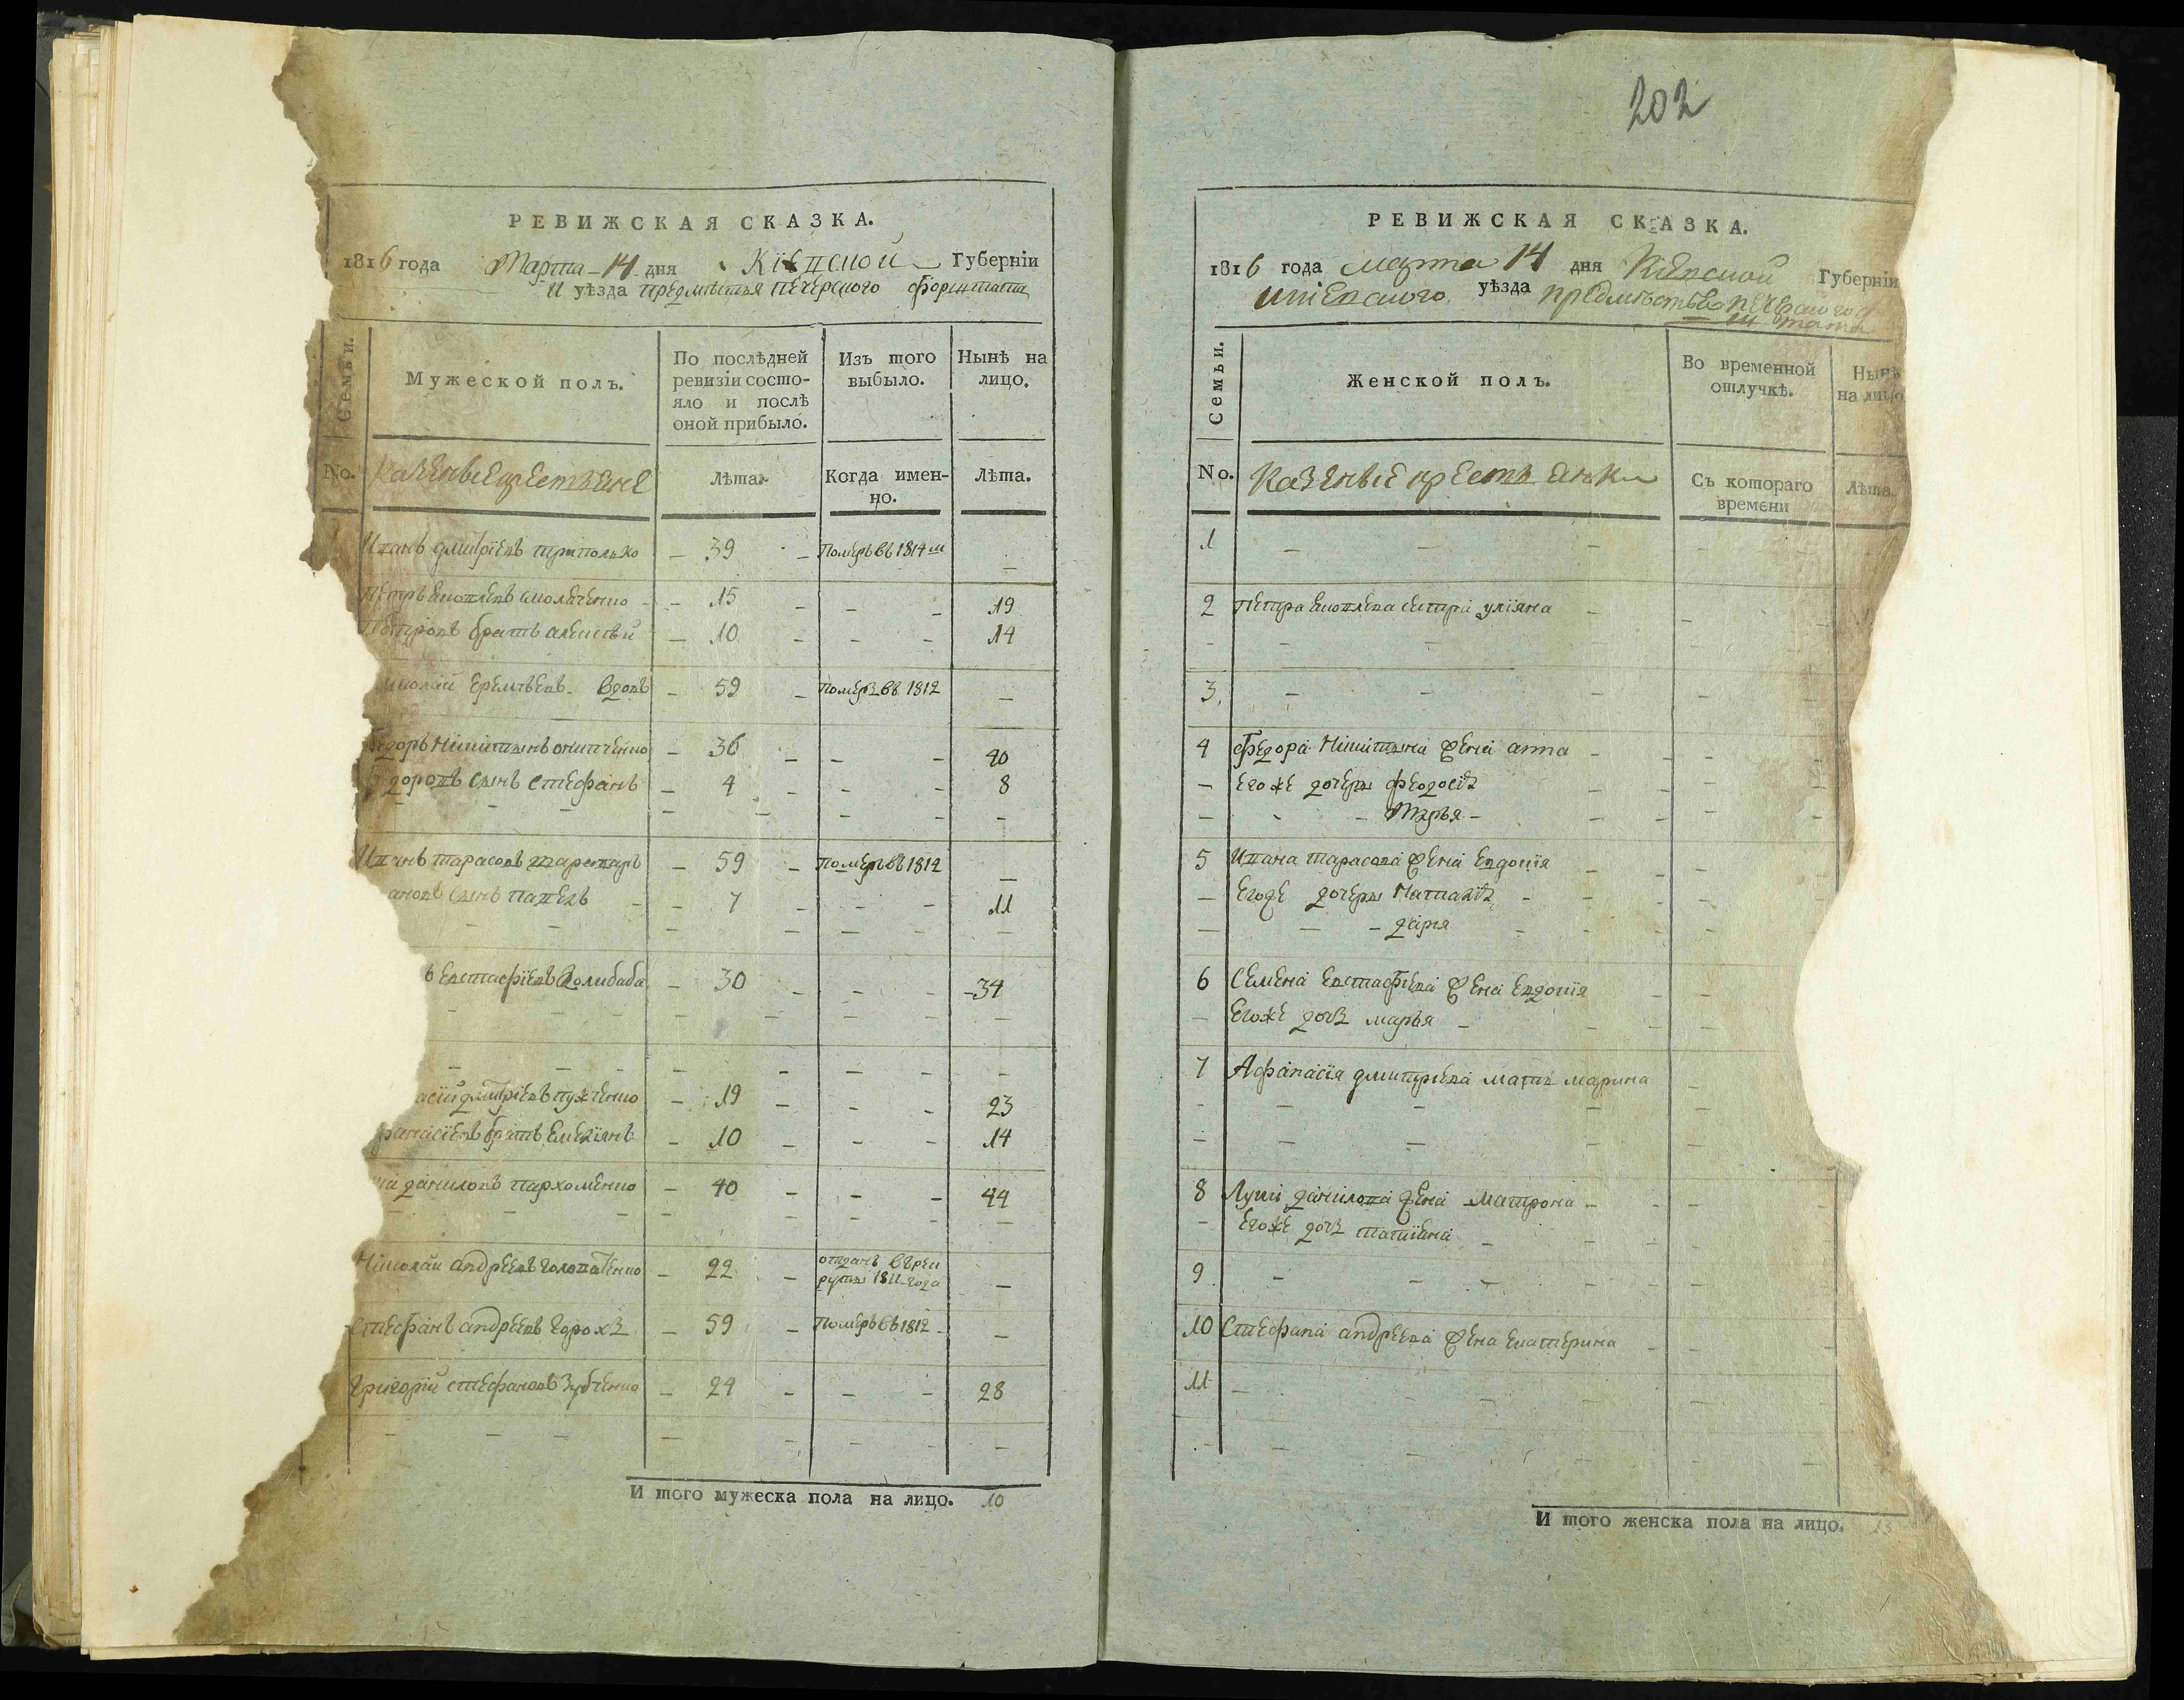 РЕВИЖСКАЯ СКАЗКА.
1816 года Марта 14 дня Кіевской Губерніи
И уѣзда предмѣстья печерского форштата
Семьи.
Мужеской полъ.
По послѣдней ревизіи состо-
яло и послѣ
оной прибыло.
Изъ того выбыло.
Нынѣ на лицо.
No.
Казенные крестьяне
Лѣта.
Когда имен-
но.
Лѣта.
Иванъ дмитріевъ триполько – 39 – Померъ въ 1814 м –
Петръ яковлевъ – 15 – – – 19
Петровъ братъ алексѣй – 10 – – – 14
николай Еремѣевъ вдовъ – 59 – померъ въ 1812 –
Федоръ Никитинъ онипченко – 36 – – – 40
доровъ сынъ стефанъ – 4 – – – 8
Иванъ тарасовъ – 59 – померъ въ 1812 –
ановъ сынъ павелъ – 7 – – – 11
ъ Евстафіевъ – 30 – – – 34
асій дмитріевъ – 19 – – – 23
фанасіевъ братъ Емелiянъ – 10 – – – 14
ка даниловъ пархоменко – 40 – – – 44
Николай андреевъ – 22 – отданъ въ рек
руты 1811 года –
Стефанъ андреевъ Горохъ – 59 – Померъ въ 1812 –
Григорій стефановъ Зубченко – 24 – – – 28
И того мужеска пола на лицо. 10
202
РЕВИЖСКАЯ СКАЗКА.
1816 года марта 14 дня Кіевской Губерніи
кіевского уѣзда предмѣстья печерского
штата
Семьи.
Женской полъ.
Во временной
отлучкѣ.
Нынѣ
на лицо
No.
Казенные крестьянки
Съ котораго
времени
Лѣта.
1 – – –
2 петра яковлева сестра улiяна –
3. – – –
4 Федора Никитина жена анна –
– Егоже дочери феодосія
– – Марья –
5 Ивана тарасова жена Евдокія
– Егоже дочери Наталія –
– – – дарія
6 Семена Евстафіева жена Евдокія
– Егоже дочь марья –
7 Афанасія дмитріева мать марина
8 Луки данилова жена Матрона –
– Егоже дочь татияна –
9 – – –
10 Стефана андреева жена Екатерина
11 –
И того женска пола на лицо. 13